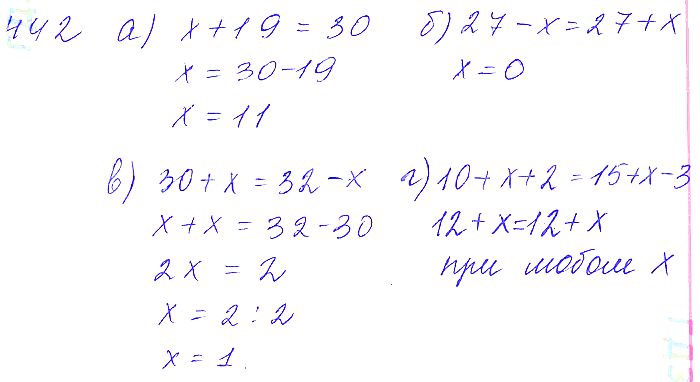 442 а) x + 19 = 30
x = 30 - 19
x = 11
б) 27 - x = 27 + x
x = 0
в) 30 + x = 32 - x
x + x = 32 - 30
2x = 2
x = 2 : 2
x = 1
г) 10 + x + 2 = 15 + x - 3
12 + x = 12 + x
при любом x